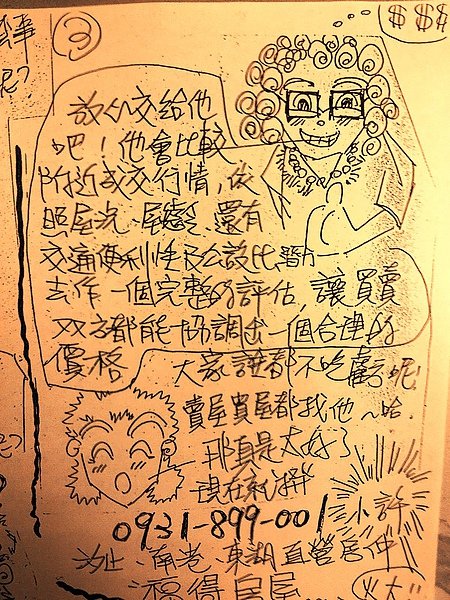 ③
$ $ $
放心交給他
吧！他會比較
附近成交行情，依
照屋況、屋齡、還有
交通便利性及公設比,
去作一個完整的評估,讓買賣
双方都能協調出一個合理的
價格
大家誰都不吃虧呢!
賣屋買屋都找他~哈.
那真是太好了
現在就撥
0931-899-001
小許
汐止、南港、東湖直營店
福得